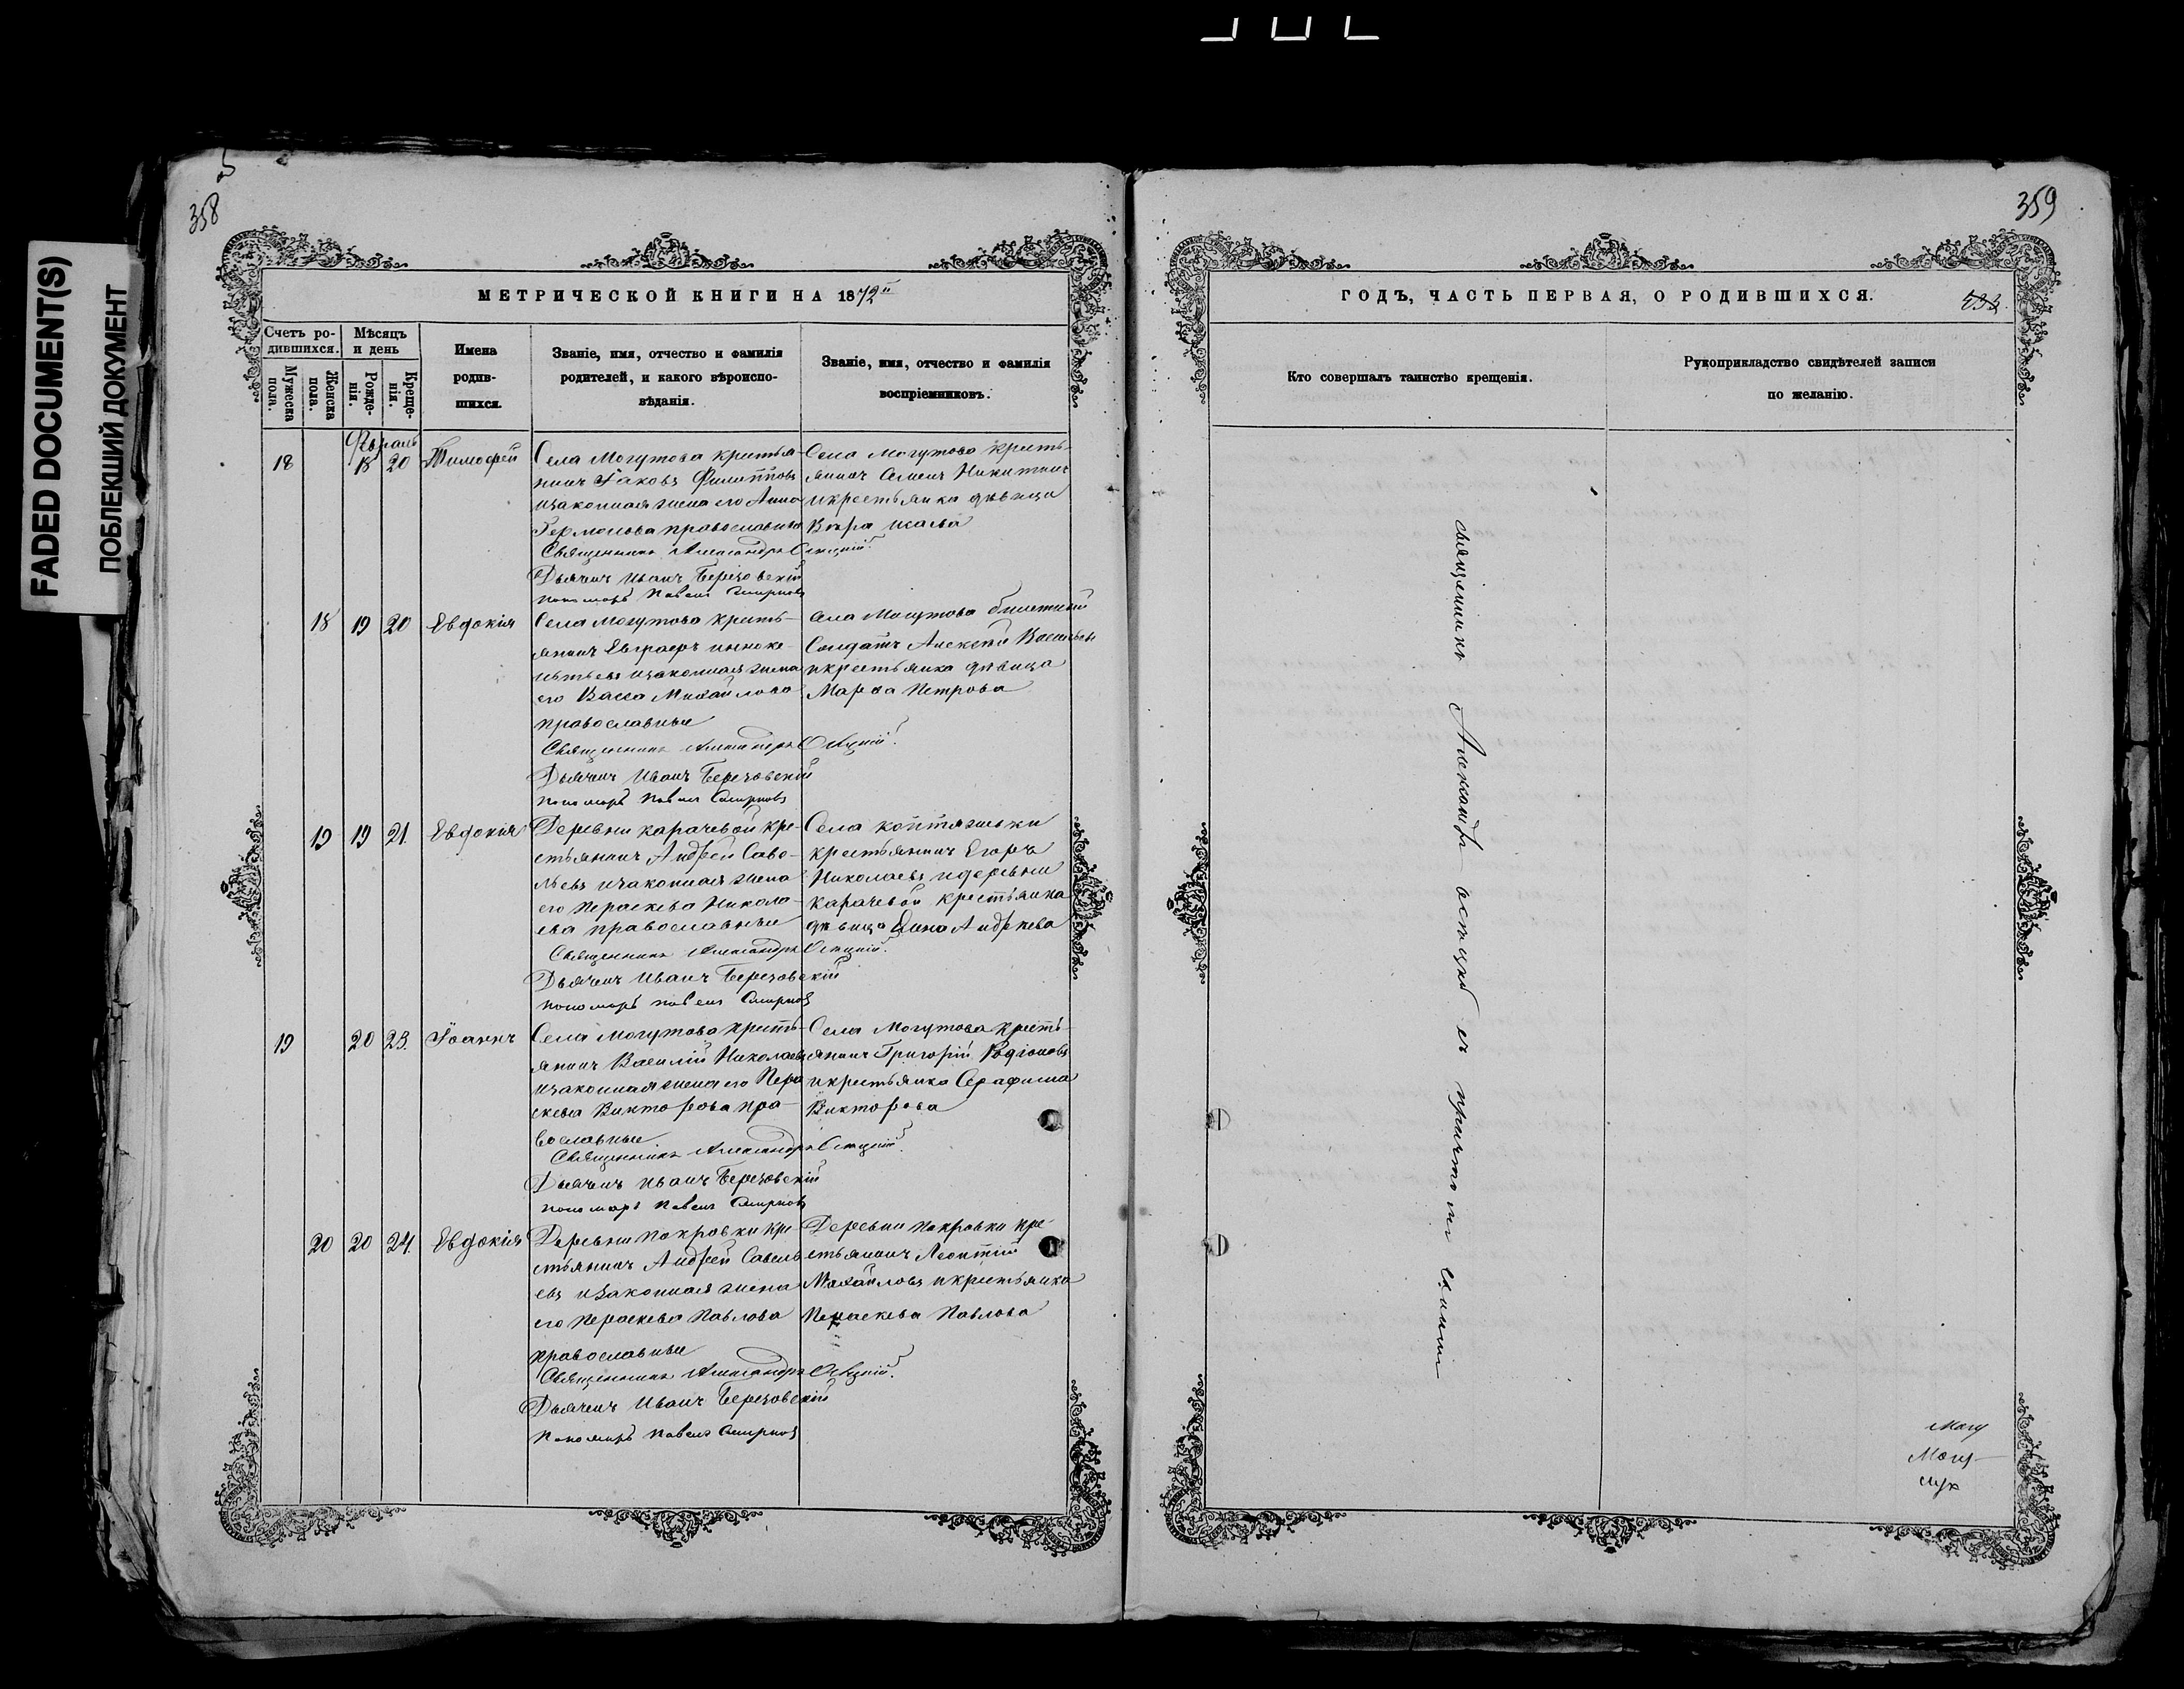 FADED DOCUMENT(S)
ПОБЛЕКШИЙ ДОКУМЕНТ
358
МЕТРИЧЕСКОЙ КНИГИ НА 1872й
Счетъ ро-
дившихся.
Мужеска
пола.
Женска
пола.
Мѣсяцъ
и день
Рожде-
нія.
Креще-
нія.
Имена
родив-
шихся.
Званіе, имя, отчество и фамилія
родителей, и какого вѣроиспо-
вѣданія.
Званіе, имя, отчество и фамилія
воспріемниковъ.
Февраль
18 18 20 Тимофей
Села Могутова крестья-
нинъ Іаковъ Филипповъ
изаконная жена его Анна
православные
Священникъ Александръ
Дьячекъ Иванъ Березовскій
пономарь Павелъ Смирновъ
Села Могутова кресть-
янинъ Семенъ Никитинъ
икрестьянка дѣвица
Вѣра
18 19 20 Евдокія
Села Могутова кресть-
янинъ Евграфъ инноке-
нтьевъ изаконная жена
его Васса Михайлова
православные
Священникъ Александръ
Дьячекъ Иванъ Березовскій
пономарь Павелъ Смирновъ
села Могутова билетный
Солдатъ Алексѣй Васильевъ
икрестьянка дѣвица
Марѳа Петрова
19 19 21. Евдокія
Деревни карачевой кре-
стьянинъ Андрей Саве-
льевъ изаконная жена
его Пераскева Никола-
ева православные
Священникъ Александръ
Дьячекъ Иванъ Березовскій
пономарь Павелъ Смирновъ
Села
крестьянинъ Егоръ
Николаевъ идеревни
карачевой крестьянка
дѣвица Анна Андреева
19 20 23. Іоаннъ
Села Могутова кресть-
янинъ Василій Николаевъ
изаконная жена его Пера
скева Викторова пра-
вославные
Священникъ Александръ
Дьячекъ Иванъ Березовскій
пономарь Павелъ Смирновъ
Села Могутова кресть-
янинъ Григорій Родіоновъ
икрестьянка Серафима
Викторова
20 20 24. Евдокія
Деревни покровки кре-
стьянинъ Андрей Савель
евъ изаконная жена
его Пераскева Павлова
православные
Священникъ Александръ
Дьячекъ Иванъ Березовскій
Пономарь Павелъ Смирновъ
Деревни покровки кре-
стьянинъ Леонтій
Михайловъ икрестьянка
Пераскева Павлова
359
ГОДЪ, ЧАСТЬ ПЕРВАЯ, О РОДИВШИХСЯ.
Кто совершалъ таинство крещенія.
Рукоприкладство свидѣтелей записи
по желанію.
священникъ Александръ съ причтомъ своимъ